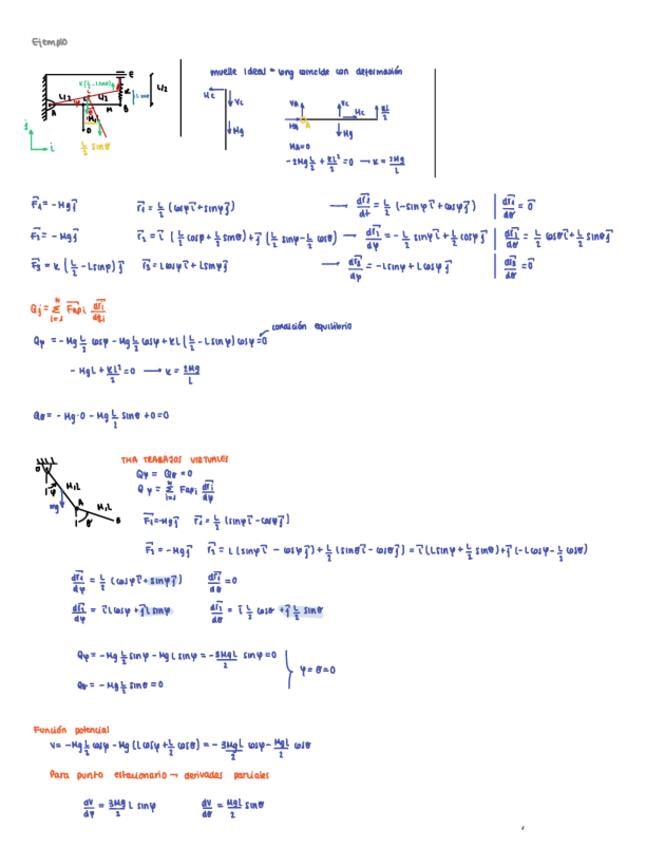 Ejemplo
muelle ideal = long coincide con deformación
E
L/2
L/2
L/2
A
M
B
D
L/2 sinθ
j
i
Hc
Vc
Mg
VA
HA
A
Vc
Hc
Mg
KL/2
MA=0
-2Mg L/2 + KL²/2 = 0 → K = 2Mg/L
F₁ = -Mg j    r₁ = L/2 (cosφ i + sinφ j) → dr₁/dt = L/2 (-sinφ i + cosφ j) | dr₁/dθ = 0
F₂ = -Mg j    r₂ = i (L/2 cosφ + L/2 sinθ) + j (L/2 sinφ - L/2 cosθ) → dr₂/dφ = -L/2 sinφ i + L/2 cosφ j | dr₂/dθ = L/2 cosθ i + L/2 sinθ j
F₃ = K (L/2 - Lsinφ) j    r₃ = Lcosφ i + Lsinφ j → dr₃/dφ = -Lsinφ + Lcosφ j | dr₃/dθ = 0
Qj = Σ i=1 N Fapi dri/dqi
condición equilibrio
Qφ = -Mg L/2 cosφ - Mg L/2 cosφ + KL (L/2 - Lsinφ) cosφ = 0
-MgL + KL²/2 = 0 → K = 2Mg/L
Qθ = -Mg·0 - Mg L/2 sinθ + 0 = 0
TMA TRABAJOS VIRTUALES
O
φ
M,L
mg
A
M,L
θ
B
Qφ = Qθ = 0
Qφ = Σ i=1 N Fapi dri/dφ
F₁ = -Mg j    r₁ = L/2 (sinφ i - cosφ j)
F₂ = -Mg j    r₂ = L (sinφ i - cosφ j) + L/2 (sinθ i - cosθ j) = i (Lsinφ + L/2 sinθ) + j (-Lcosφ - L/2 cosθ)
dr₁/dφ = L/2 (cosφ i + sinφ j)    dr₁/dθ = 0
dr₂/dφ = i Lcosφ + j Lsinφ    dr₂/dθ = i L/2 cosθ + j L/2 sinθ
Qφ = -Mg L/2 sinφ - MgL sinφ = -3MgL/2 sinφ = 0
φ = θ = 0
Qθ = -Mg L/2 sinθ = 0
Función potencial
V = -Mg L/2 cosφ - Mg (Lcosφ + L/2 cosθ) = -3MgL/2 cosφ - MgL/2 cosθ
Para punto estacionario → derivadas parciales
dV/dφ = 3Mg/2 L sinφ    dV/dθ = MgL/2 sinθ